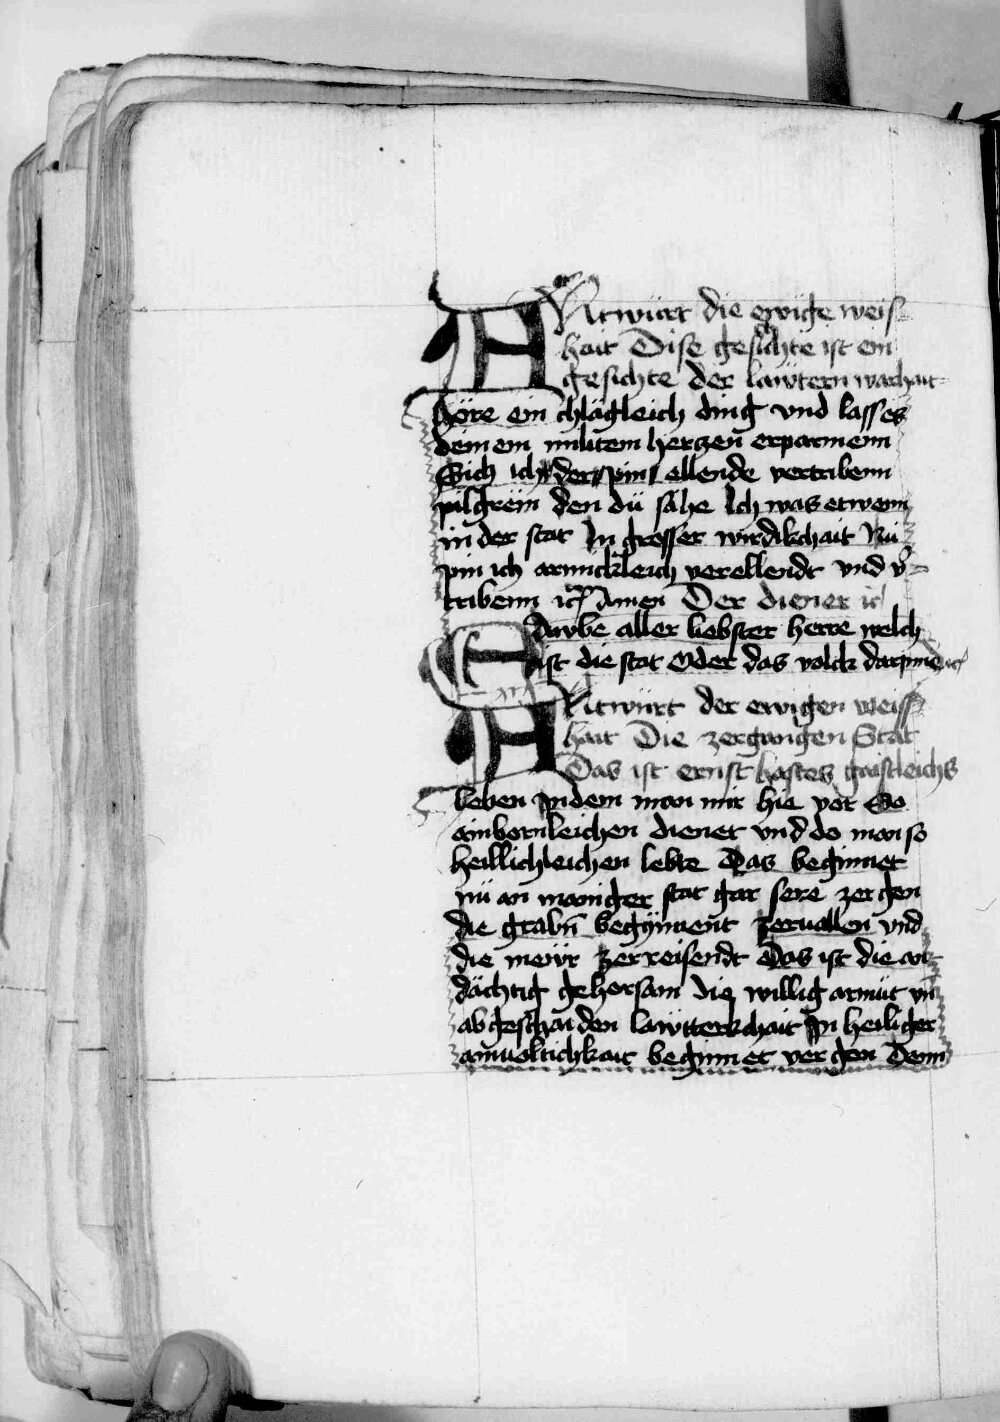 Antwürt die ewige weis⸗
hait Dise gesichte ist ein
gesichte der lawtern warhait
höre ein chlägleich ding vnd lasses
deinem miltem herczen erparmenn
Sich ich der pin ellende vertribenn
pilgreim den dü sähe Ich was etwenn
in der stat In grosser wirdikchait Nü
pin ich armickleich verellendt vnd v̾⸗
tribenn Amen Der diener
Awbe aller liebster herre welch
ist die stat Oder das volck darpinne
Antwürt der ewigen weiss⸗
hait Die zergangen Stat
Das ist ernst haftes gaistleichs
leben Indem man mir hie vor So
ainbernleichen dienet vnd do man so
heillichleichen lebte Das beginnet
nü an maniger stat gar sere zergen
die grabn̄ begynnent zeruallen vnd
die mewr zerreisendt Das ist die an⸗
dächtig gehorsam die willig armüt vn̄
abgeschaiden lawtterkchait In heiliger
ainueltichkait beginnet vergen Denn